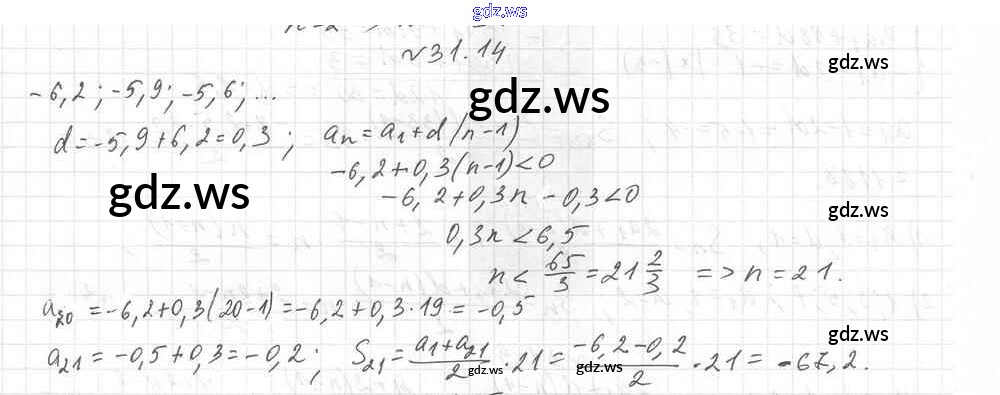 gdz.ws
№31.14
gdz.ws
-6,2; -5,9; -5,6; ...
gdz.ws
d=-5,9+6,2=0,3; aₙ=a₁+d(n-1)
-6,2+0,3(n-1)<0
gdz.ws
-6,2+0,3n-0,3<0
gdz.ws
0,3n<6,5
n< 65/3 =21 2/3 => n=21.
a₂₀=-6,2+0,3(20-1)=-6,2+0,3·19=-0,5
gdz.ws
a₂₁=-0,5+0,3=-0,2; S₂₁= (a₁+a₂₁)/2 ·21= (-6,2-0,2)/2 ·21= -67,2.
gdz.ws
gdz.ws